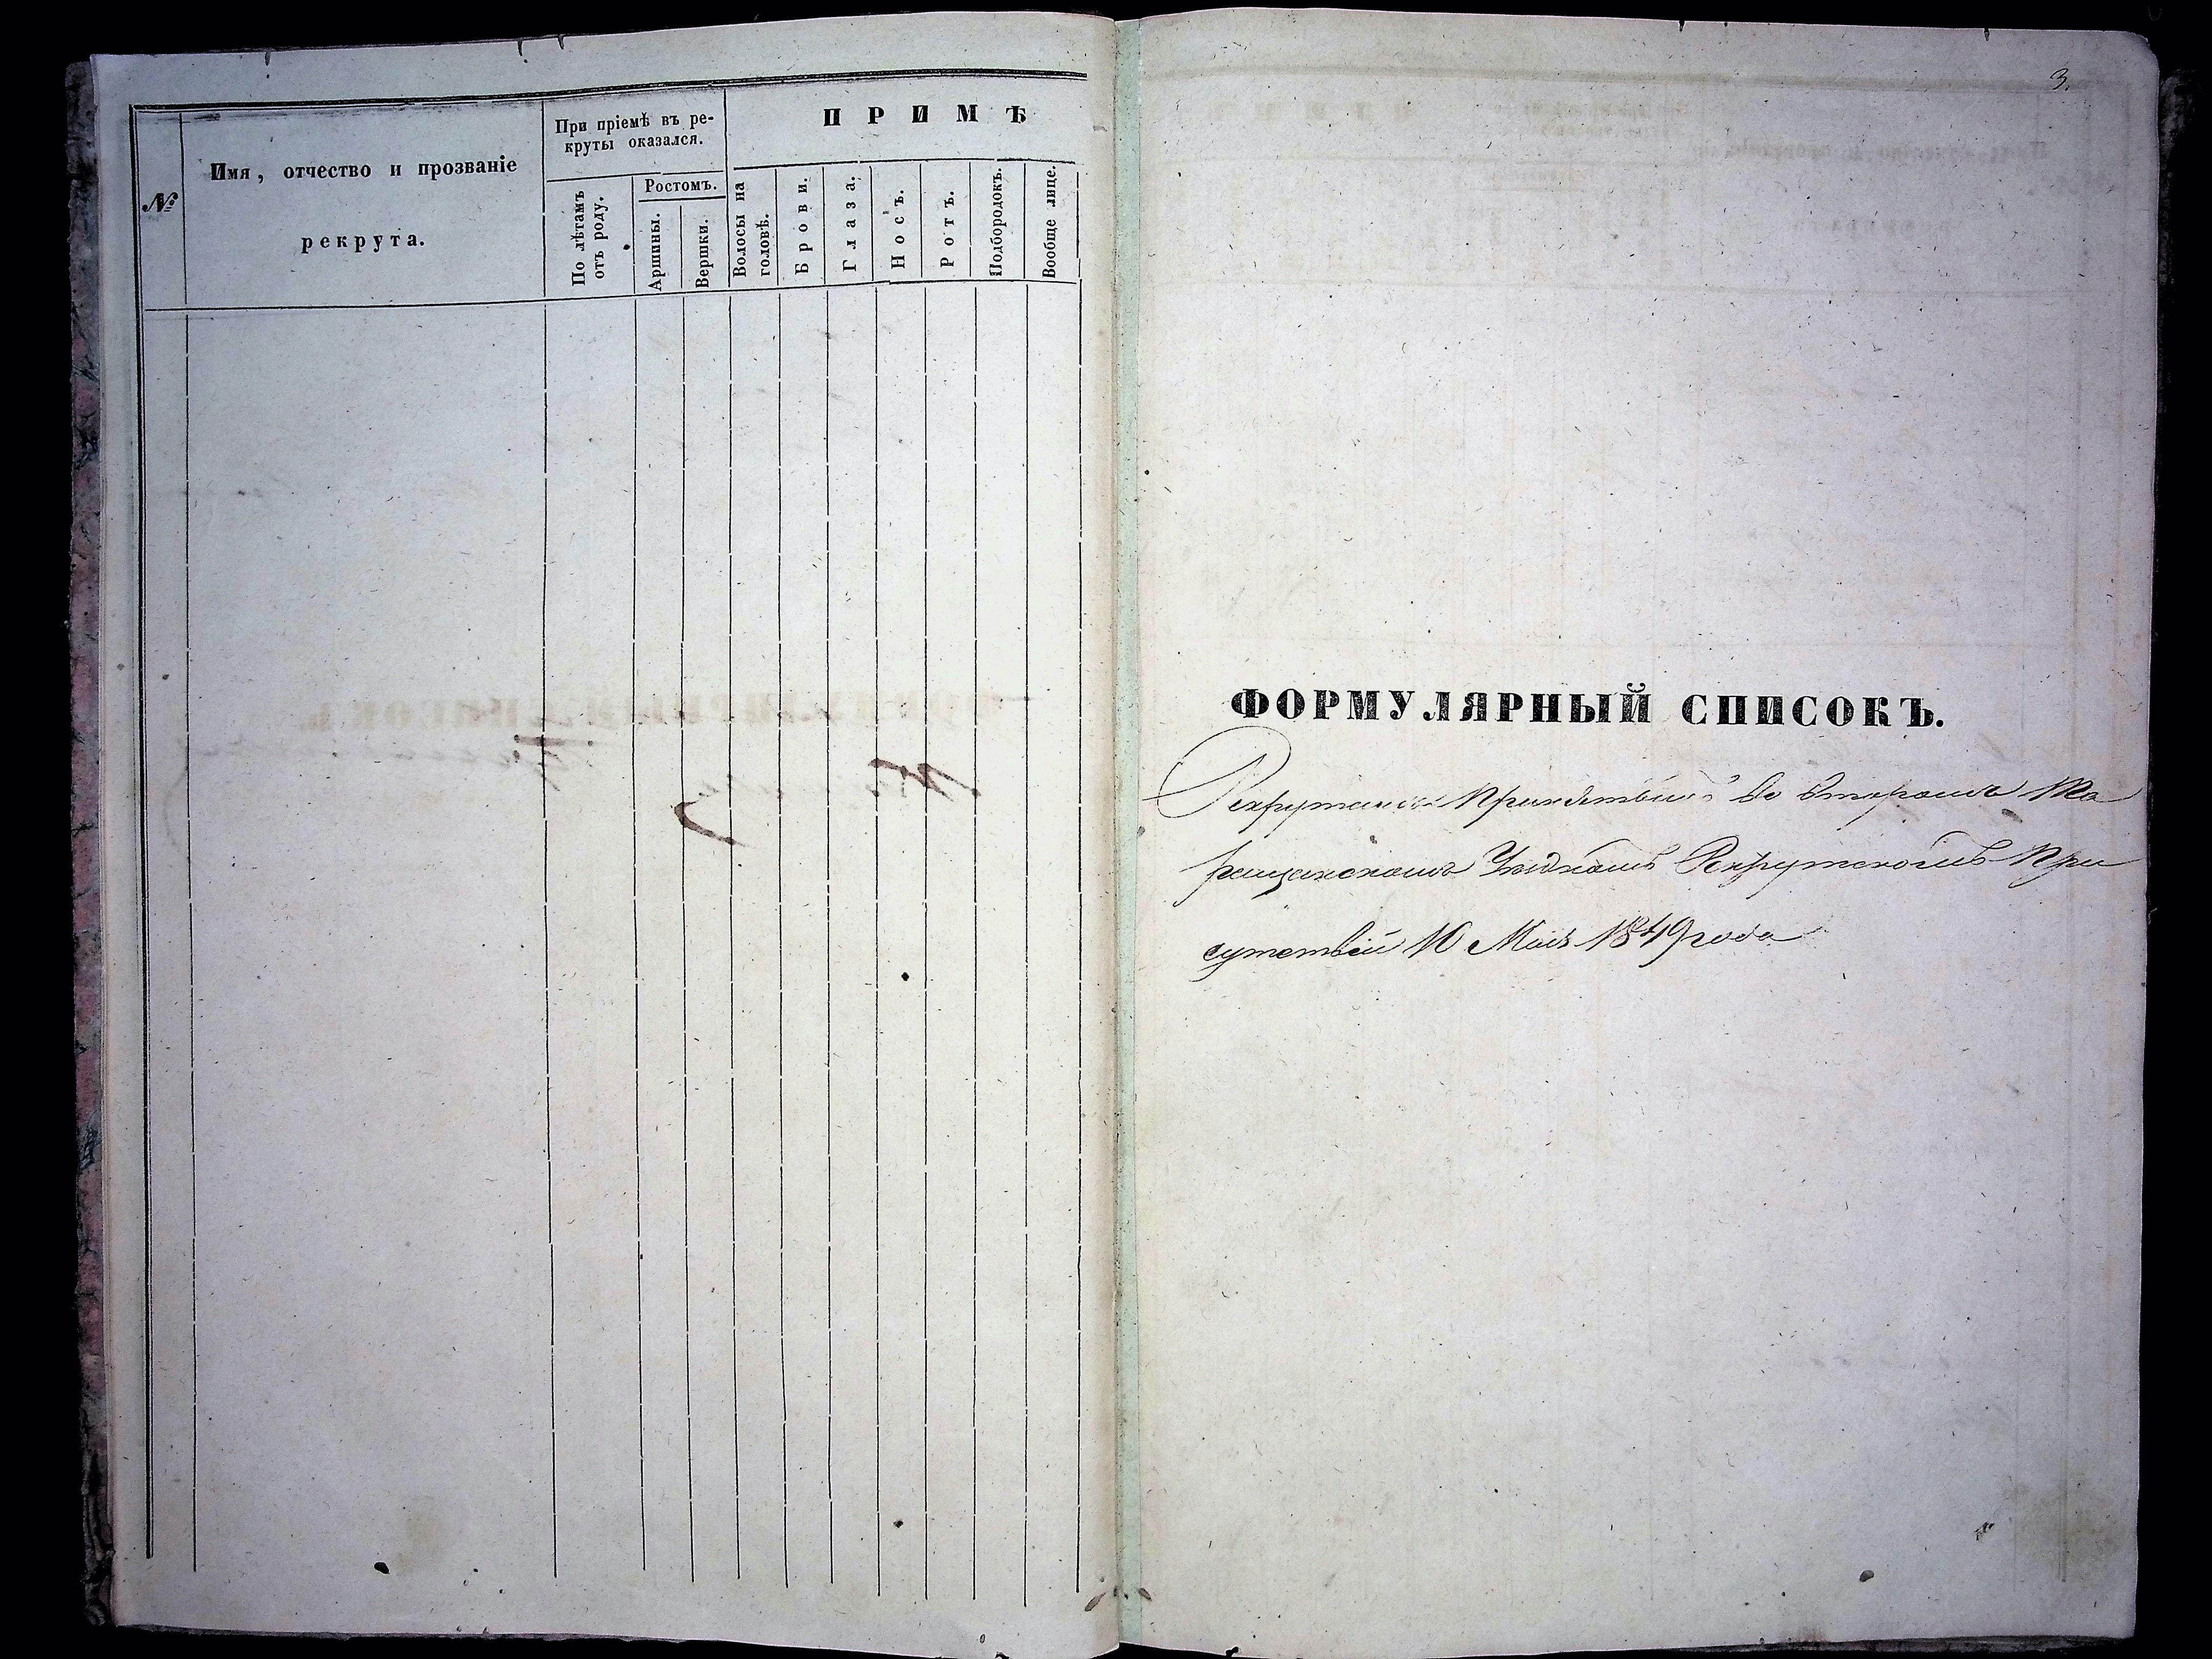 №
Имя, отчество и прозваніе
рекрута.
При пріемѣ въ ре-
круты оказался.
По лѣтамъ
отъ роду.
Ростомъ.
Аршины.
Вершки.
ПРИМѢ
Волосы на
головѣ.
Брови.
Глаза.
Носъ.
Ротъ.
Подбородокъ.
Вообще лице.
3.
ФОРМУЛЯРНЫЙ СПИСОКЪ.
Рекрутамъ Принятымъ во второмъ Та
ращанскомъ Уѣздномъ Рекрутскомъ При
сутствіи 10 Маія 1849 года